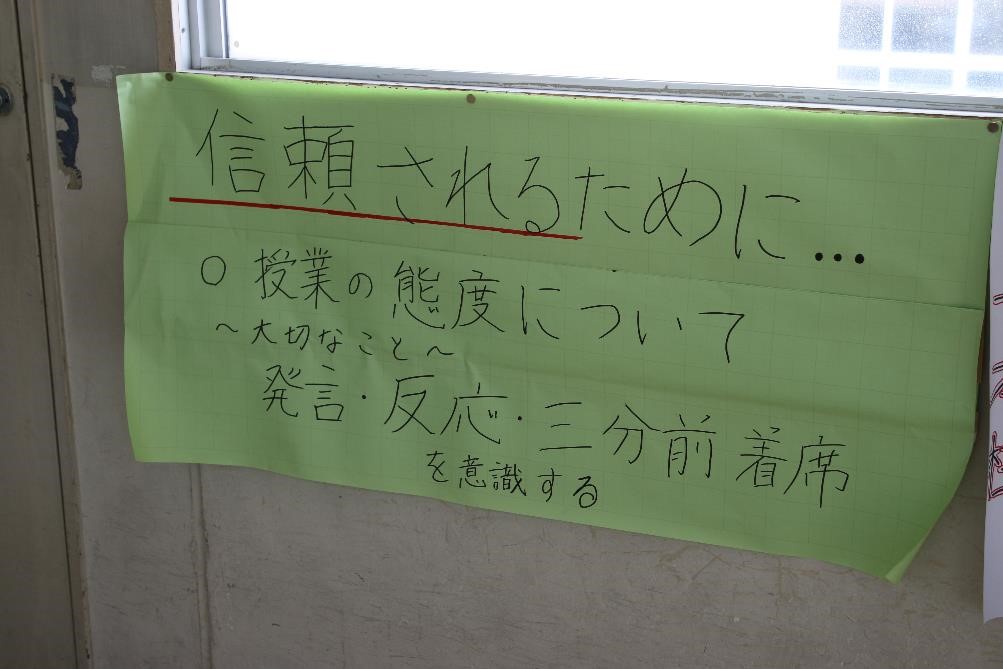 信頼されるために...
○ 授業の態度について
～大切なこと～
発言・反応・三分前着席
を意識する